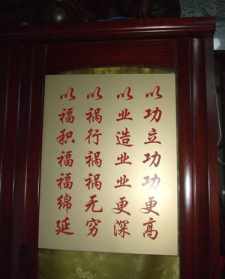 以功立功功更高
以业造业业更深
以祸行祸祸无穷
以福积福福绵延